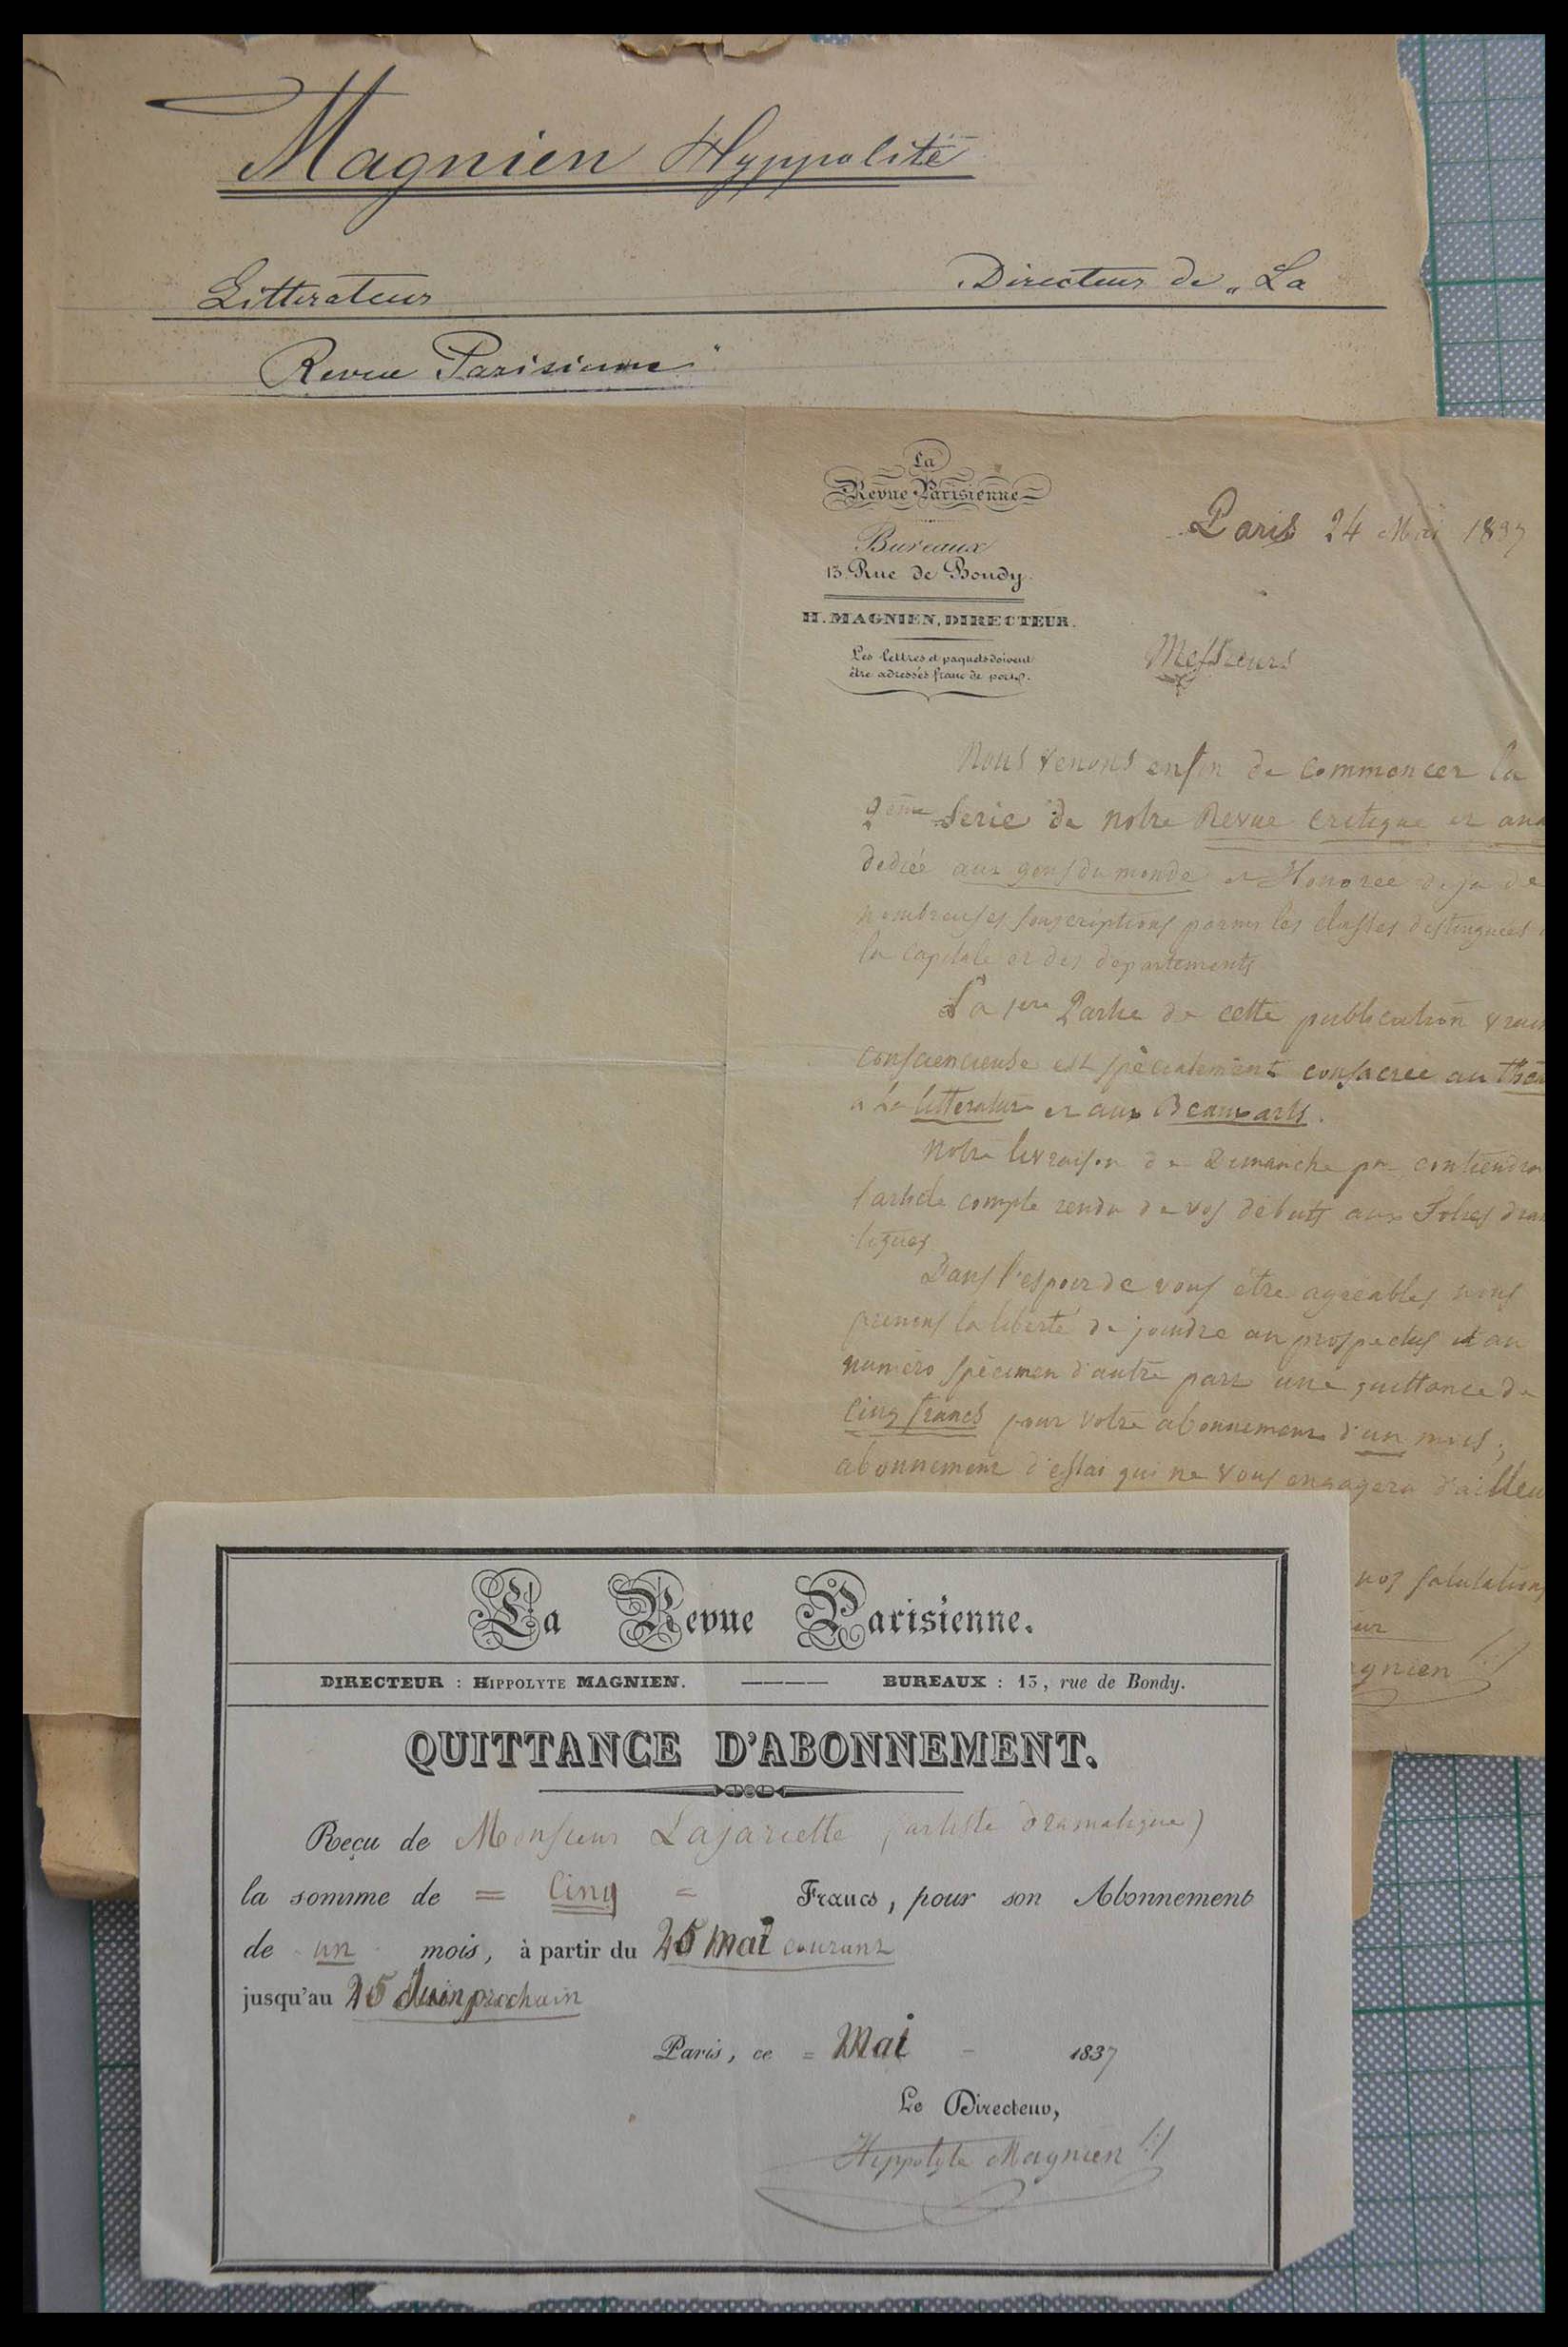 Magnien Hyppolite
Litterateur Directeur de „La
Revue Parisienne"
La
Revue Parisienne
Bureaux
13. Rue de Bondy.
H. MAGNIEN, DIRECTEUR.
Les lettres et paquets doivent
être adressés franc de port.
Paris 24 Mai 1837
Messieurs
Nous venons enfin de commencer la
2eme Serie de notre Revue critique et ana
dediée aux gens du monde et Honorée deja de
nombreuses souscriptions parmi les classes distinguées
la capitale et des departements
La 1ere Partie de cette publication vraim
consciencieuse est spècialement consacrée au théa
a la litterature et aux Beaux arts.
Notre livraison de Dimanche pn contiendra
l'article compte rendu de vos debuts aux Folies dram
tiques
Dans l'espoir de vous etre agreables nous
prenons la liberté de joindre au prospectus et au
numèro spècimen d'autre part une quittance de
Cinq francs pour votre abonnement d'un mois;
abonnement d'essai qui ne vous engagera d'ailleu
nos salutations
eur
agnien
La Revue Parisienne.
DIRECTEUR : HIPPOLYTE MAGNIEN. ——— BUREAUX : 13, rue de Bondy.
QUITTANCE D'ABONNEMENT.
Reçu de Monsieur Lajariette (artiste dramatique)
la somme de = Cinq = Francs, pour son Abonnement
de un mois, à partir du 25 Mai courant
jusqu'au 25 Juin prochain
Paris, ce = Mai - 1837
Le Directeur,
Hippolyte Magnien